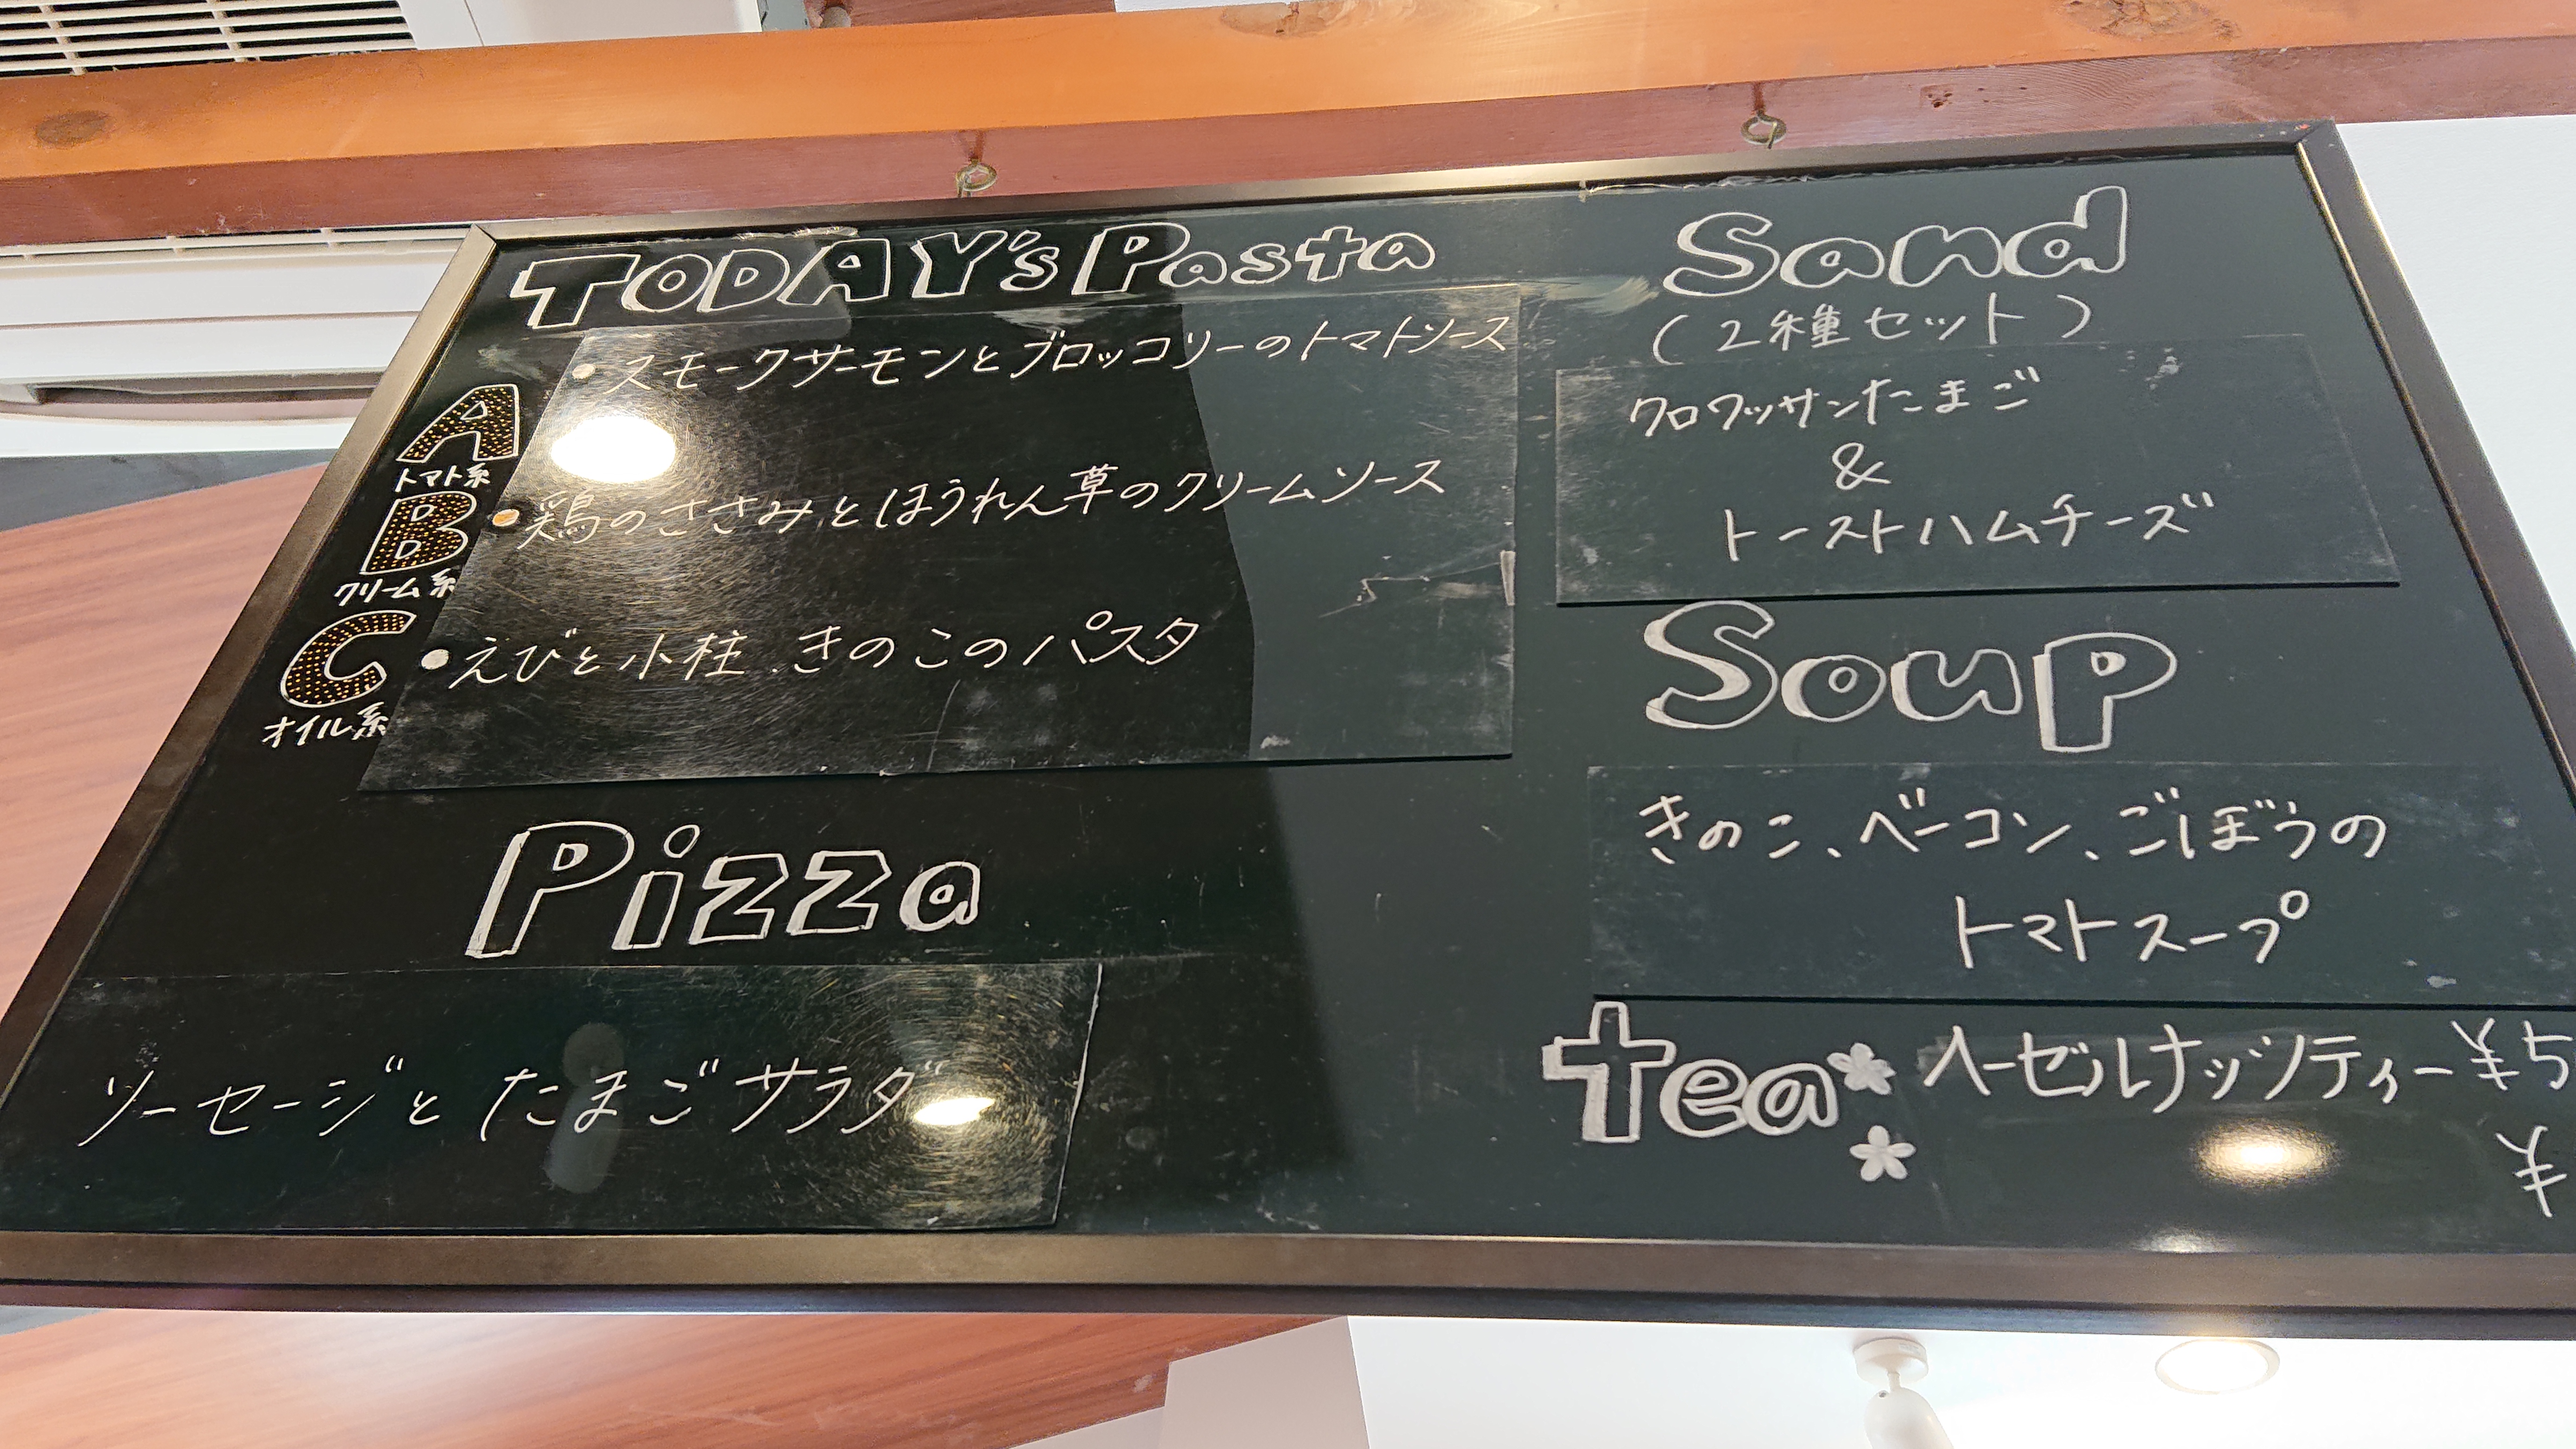 TODAY's Pasta
A
トマト系
・スモークサーモンとブロッコリーのトマトソース
B
クリーム系
・鶏のささみとほうれん草のクリームソース
C
オイル系
・えびと小柱、きのこのパスタ
Pizza
ソーセージとたまごサラダ
Sand
(2種セット)
クロワッサンたまご
&
トーストハムチーズ
Soup
きのこ、ベーコン、ごぼうの
トマトスープ
tea ヘーゼルナッツティー ¥5
¥